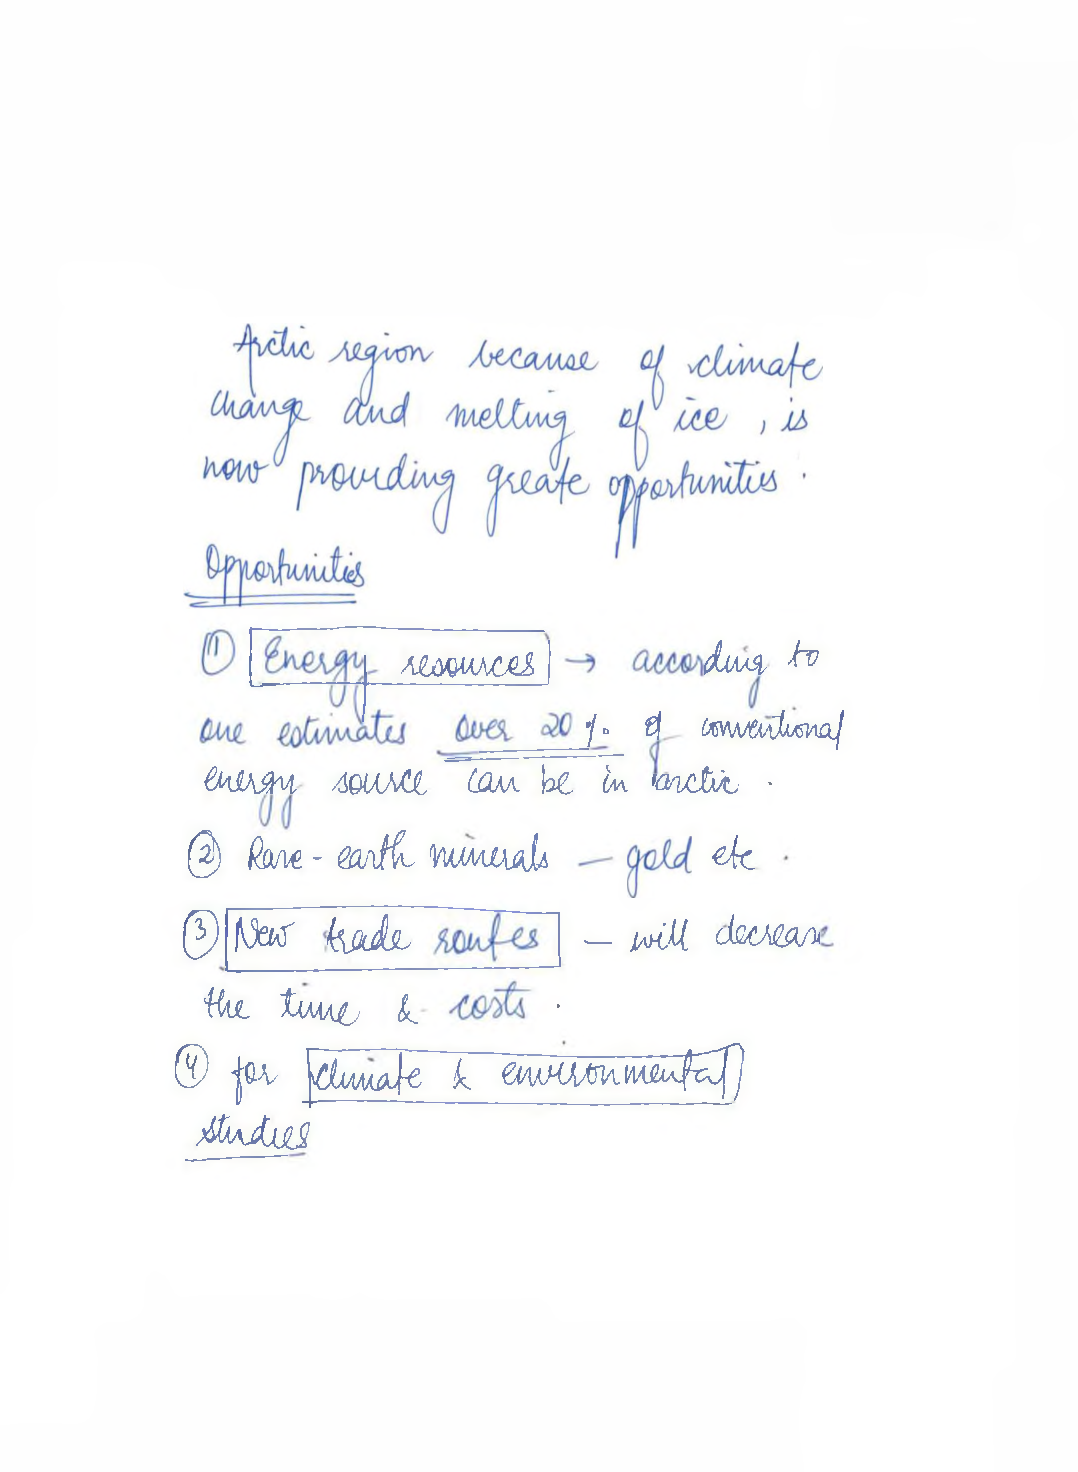 Arctic region because of climate
change and melting of ice, is
now providing greate opportunities.
Opportunities
① Energy resources → according to
one estimates over 20% of conventional
energy source can be in arctic.
② Rare-earth minerals — gold etc.
③ New trade routes — will decrease
the time & costs.
④ for climate & environmental
studies